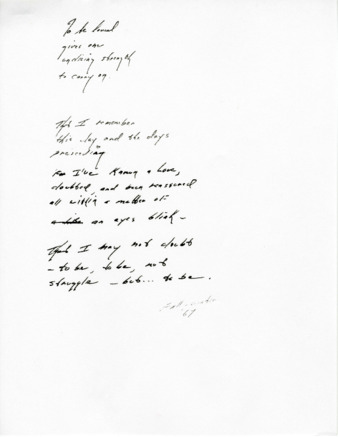 To be loved
gives one
undying strength
to carry on.
That I remember
this day and the days
preceeding
For I've known a love,
doubted and been reassured
all within a matter of
an eyes blink -
That I may not doubt
- to be, to be, not
struggle - but... to be.
67